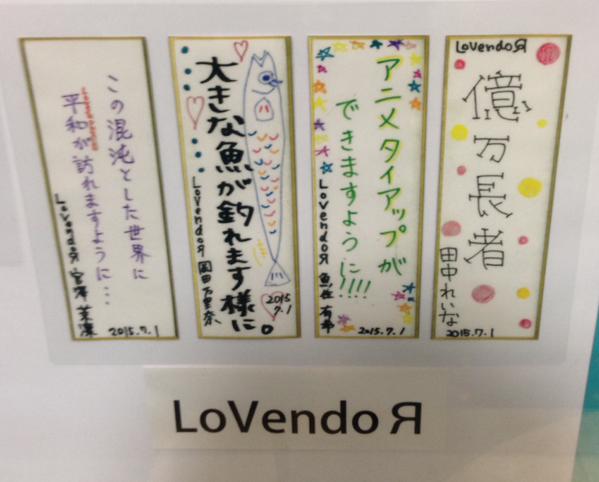 この混沌とした世界に
平和が訪れますように…
LoVendoЯ 宮澤 茉凜
2015.7.1
大きな魚が釣れます様に。
LoVendoЯ 岡田万里奈
2015
7.1
アニメタイアップが
できますように!!!!
LoVendoЯ 魚住 有希
2015.7.1
LoVendoЯ
億万長者
田中れいな
2015.7.1
LoVendoЯ